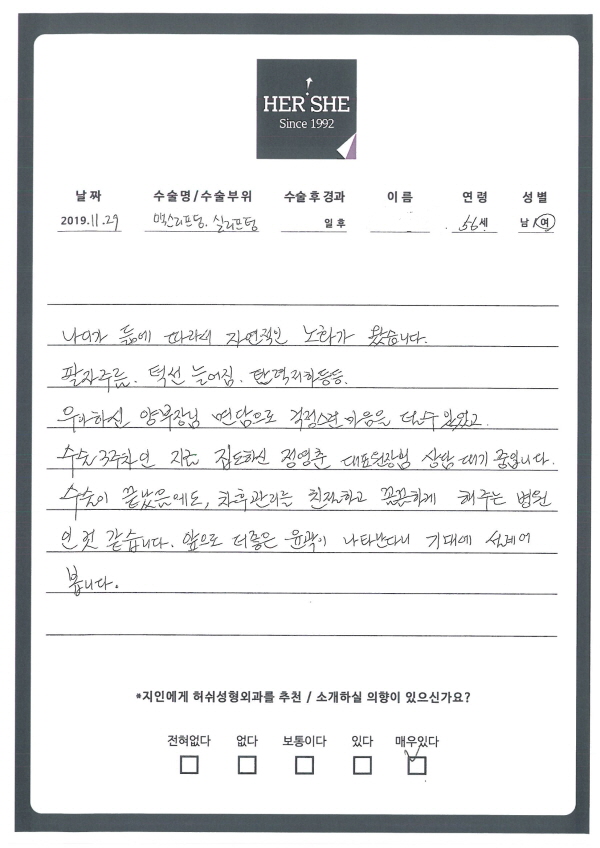 HER SHE
Since 1992
날 짜 수술명/수술부위 수술 후 경과 이 름 연 령 성 별
2019.11.29 맥스리프팅. 실리프팅 일 후 56세 남/여
나이가 듦에 따라서 자연적인 노화가 왔습니다.
팔자주름. 턱선 늘어짐. 탄력저하등등.
우아하신 양실장님 면담으로 걱정스런 마음을 덜수 있었고
수술 3주차인 지금 집도하신 정영춘 대표원장님 상담 대기 중입니다.
수술이 끝났음에도, 차후관리를 친절하고 꼼꼼하게 해주는 병원
인것 같습니다. 앞으로 더좋은 윤곽이 나타난다니 기대에 설레어
봅니다.
*지인에게 허쉬성형외과를 추천 / 소개하실 의향이 있으신가요?
전혀없다 없다 보통이다 있다 매우있다